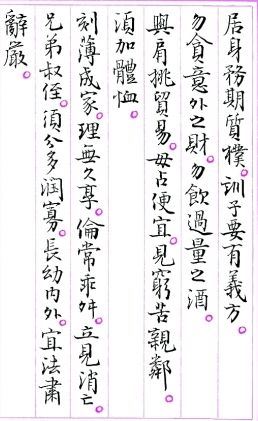 居身務期質樸。訓子要有義方。
勿貪意外之財。勿飲過量之酒。
與肩挑貿易。毋占便宜。見窮苦親鄰。
須加體恤。
刻薄成家。理無久享。倫常乖舛。立見消亡。
兄弟叔侄。須分多潤寡。長幼內外。宜法肅
辭嚴。